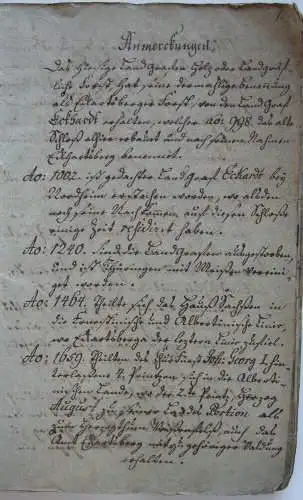 Anmerckungen.
Das hiesige Land Grafen Holz oder Landgräf-
liche Forst hat seine dermahlige Benennung
als Eckartsberger Forst, von den Land Graf
Eckardt erhalten, welcher ao: 998. das alte
Schloß alhier erbauet und nach seinem Nahmen
Eckartsberg benennet.
Ao: 1002. ist gedachter Land Graf Eckardt bey
Nordheim erstochen worden, wo alsden
noch seine Nachkomen auf diesen Schloße
einige Zeit residiret haben.
Ao: 1240. sind die Land Grafen ausgestorben,
und ist Thüringen mit Meißen verei-
niget worden.
Ao: 1464. Theilte sich das Hauß Sachsen in
die Ernestinische und Albertinische Linie,
wo Eckartsberga der leztern Linie zufiel.
Ao: 1659. theilten des Churfürst Joh: Georg I. hin-
terlaßene 4. Printzen sich in die Alberti-
nischen Lande, wo der 2.te Printz, Herzog
August zu seiner Landes Portion als
zum Herzogthum Weißenfelß, auch das
Amt Eckartsberga mit zugehöriger Waldung
erhalten.